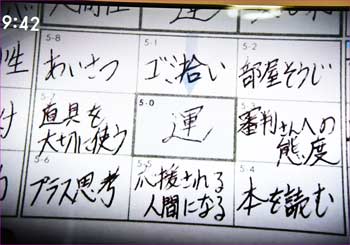 9:42
運
性
5-8
5-1
5-2
あいさつ
ゴミ拾い
部屋そうじ
5-7
5-0
道具を
大切に使う
運
審判さんへの
態度
5-6
5-5
5-4
プラス思考
応援される
人間になる
本を読む